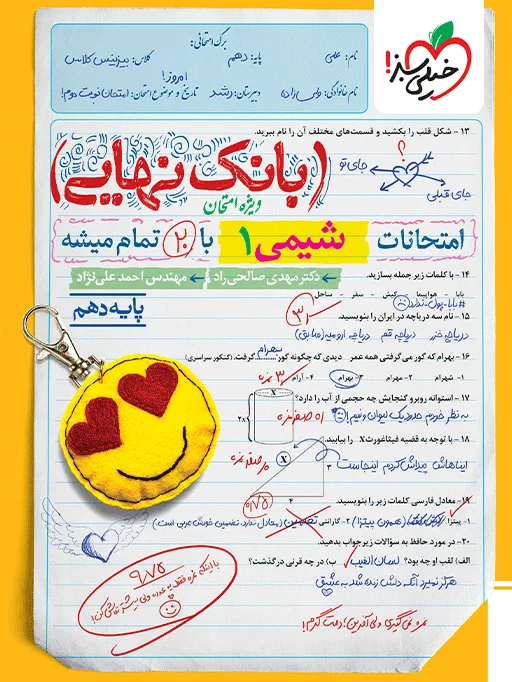 خیلی سبز!
برگ امتحانی:
نام: علی
پایه: دهم
کلاس: بیزینس کلاس
نام خانوادگی: ولی زاده
دبیرستان: رشد
تاریخ و موضوع امتحان: امتحان نوبت دوم!
امروز!
۱۳ - شکل قلب را بکشید و قسمت‌های مختلف آن را نام ببرید.
؟
جای تو
جای قبلی
(بانک نهایی)
ویژه امتحان
امتحانات شیمی ۱ با ۲۰ تمام میشه
۱۴ - با کلمات زیر جمله بسازید.
دکتر مهدی صالحی‌راد
مهندس احمد علی‌نژاد
بابا - هواپیما - کیش - سفر - ساحل
#بابا_پول_ندارد
پایه دهم
۱۵ - نام سه دریاچه در ایران را بنویسید.
دریاچه خزر دریاچه قم دریاچه ارومیه (سابق)
۱۶ - بهرام که گور می گرفتی همه عمر دیدی که چگونه گور بهرام گرفت. (کنکور سراسری)
۱ - شهرام ۲ - مهرام ۳ - بهرام ۴ - آرام
۳ نمره
۱۷ - استوانه روبرو گنجایش چه حجمی از آب را دارد؟
به نظر خودم حدود یک لیوان و نیم!
۲x
x
۱۸ - با توجه به قضیه فیثاغورث x را بیابید.
ایناهاش پیداش کردم اینجاست
X
۳
۴
۰/۷۵
۱۹ - معادل فارسی کلمات زیر را بنویسید.
۱- پیتزا (همون پیتزا) ۲- گارانتی تضمین (معادل ندارد. تضمین خودش عربی است.)
۲۰ - در مورد حافظ به سؤالات زیر جواب بدهید.
الف) لقب او چه بود؟ لسان الغیب ب) در چه قرنی درگذشت؟
هرگز نمیرد آنکه دلش زنده شد به عشق
۹/۷۵
نمره نمی گیری ولی آفرین! دمت گرم!